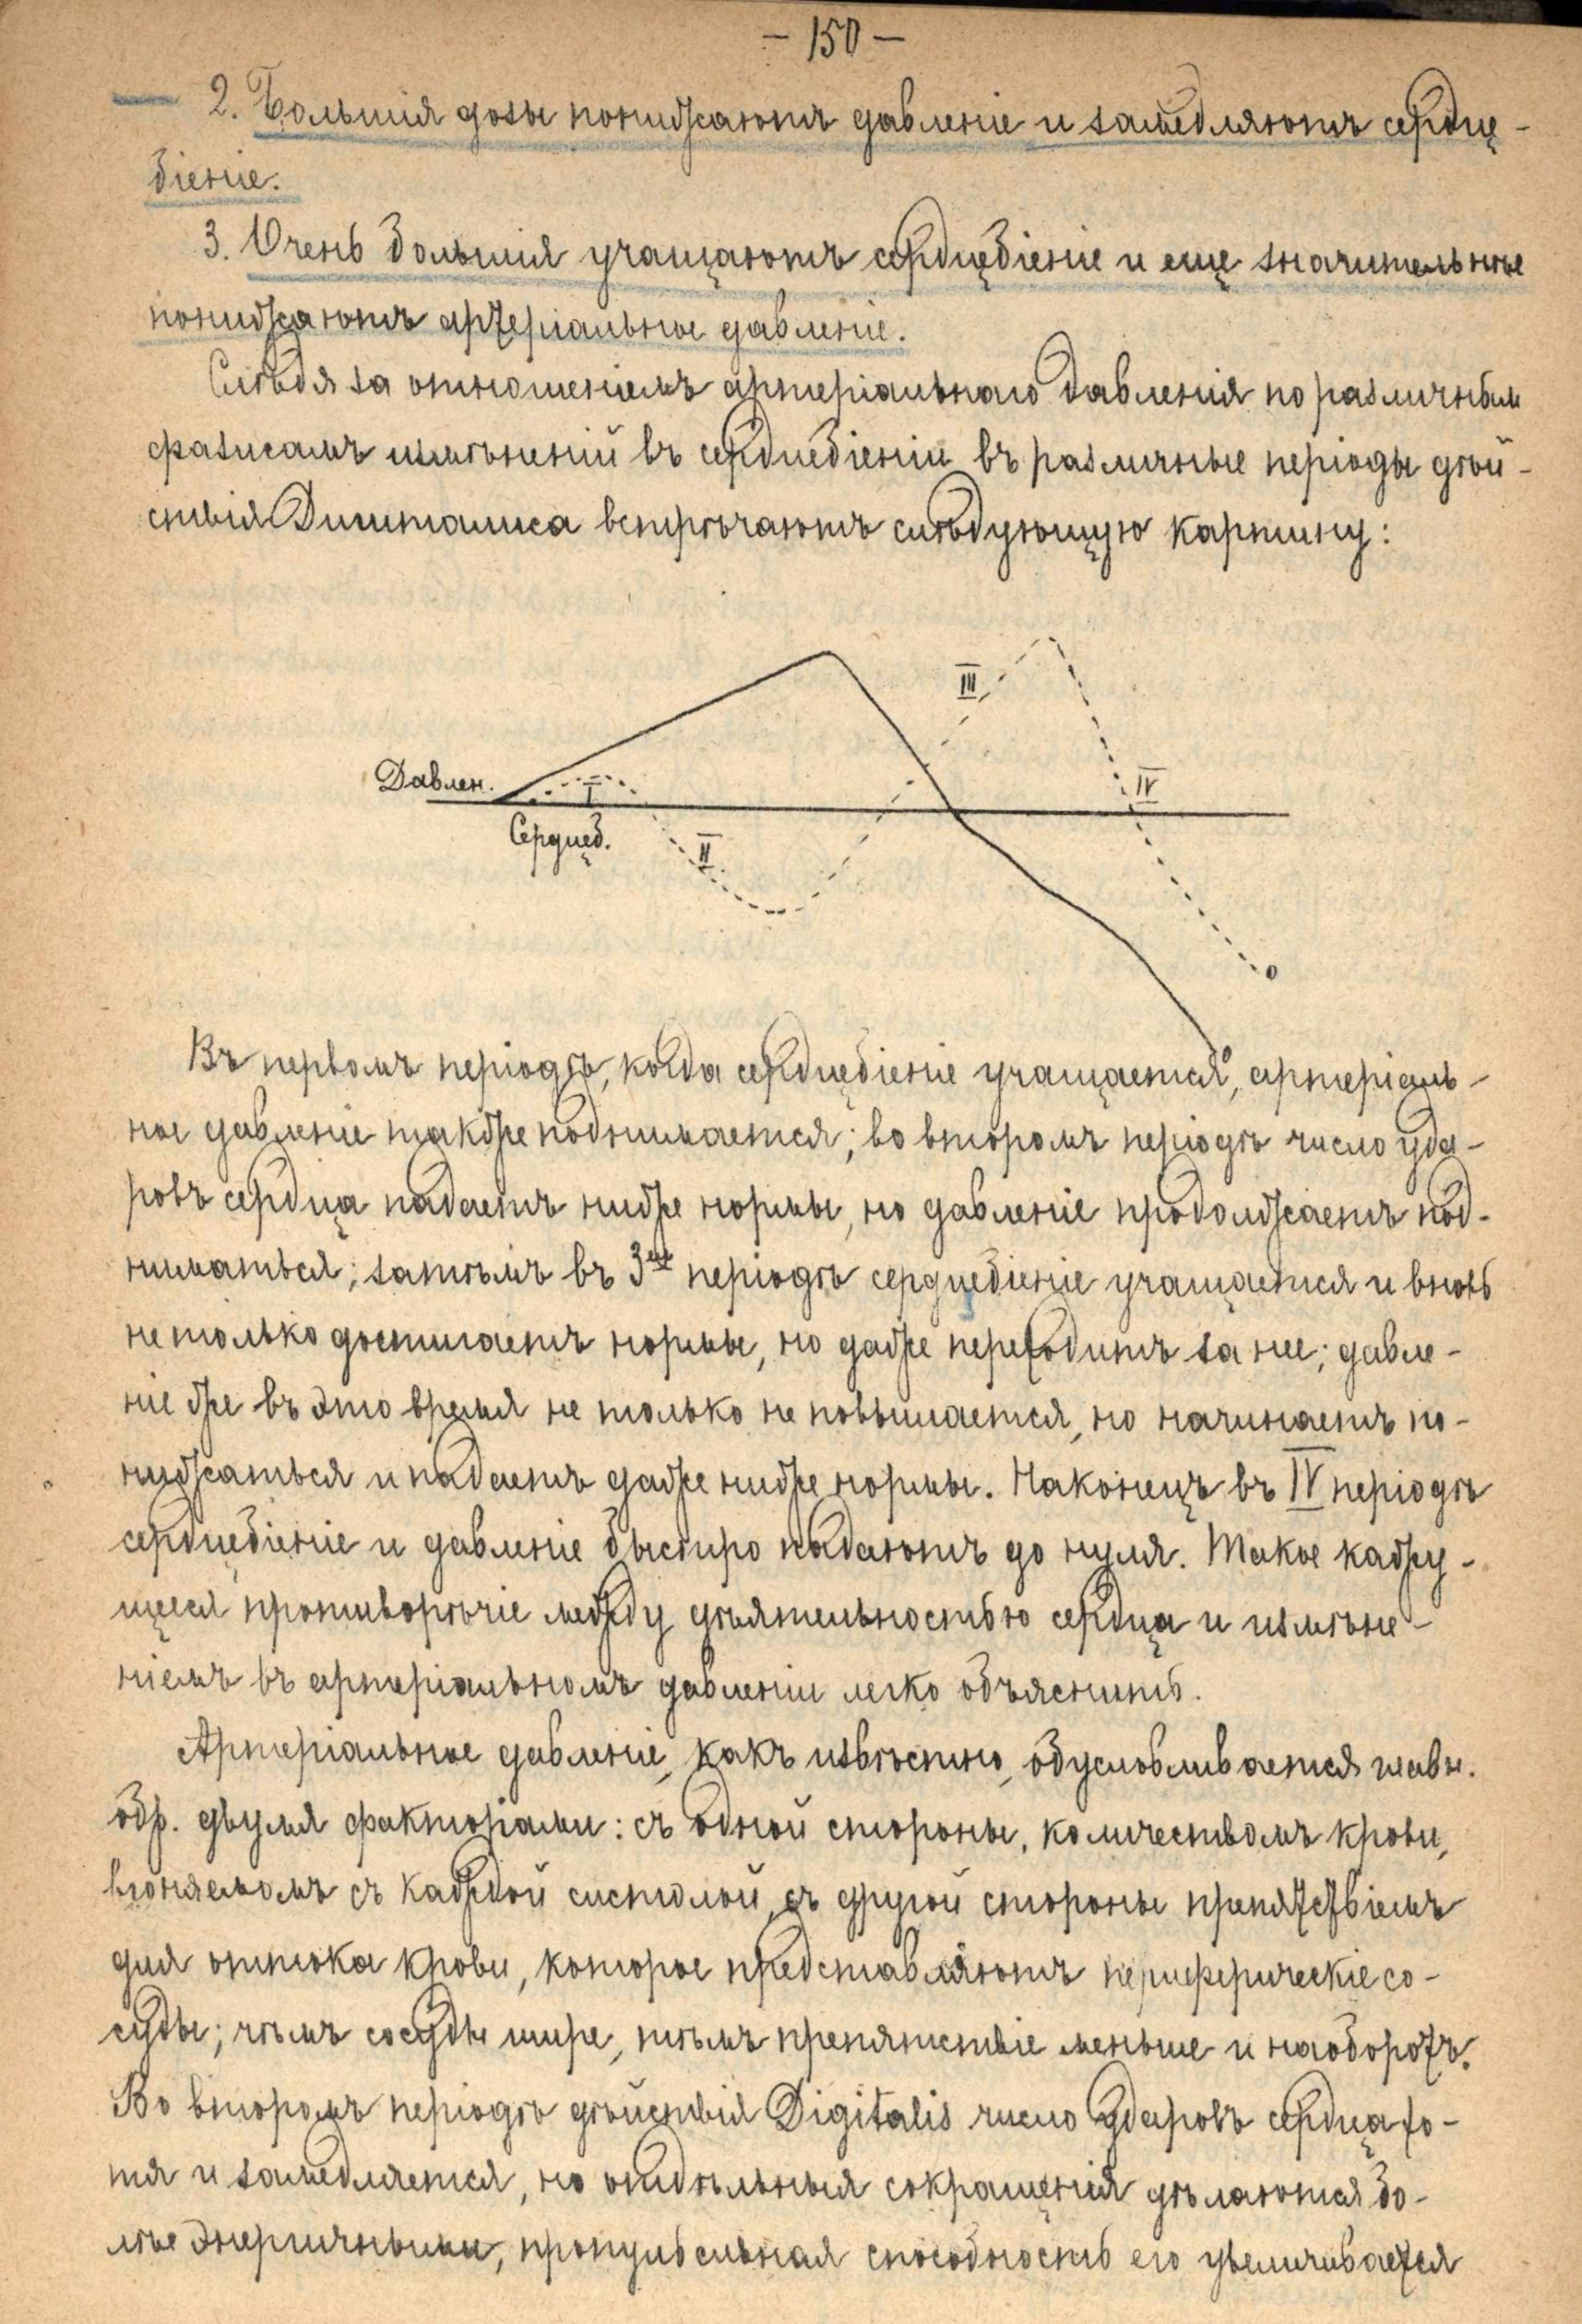 — 150 —
2. Большія дозы понижаютъ давленіе и замедляютъ сердце-
біеніе.
3. Очень большія учащаютъ сердцебіеніе и еще значительнѣе
понижаютъ артеріальное давленіе.
Слѣдя за отношеніемъ артеріальнаго давленія по различнымъ
фазисамъ измѣненій въ сердцебіеніи въ различные періоды дѣй-
ствія Дигиталиса встрѣчаютъ слѣдующую картину:
III
Давлен.
I
IV
Сердцеб.
II
0
0
Въ первомъ періодѣ, когда сердцебіеніе учащается, артеріаль-
ное давленіе также поднимается; во второмъ періодѣ число уда-
ровъ сердца падаетъ ниже нормы, но давленіе продолжаетъ под-
ниматься; затѣмъ въ 3мъ періодѣ сердцебіеніе учащается и вновь
не только достигаетъ нормы, но даже переходитъ за нее; давле-
ніе же въ это время не только не повышается, но начинаетъ по-
нижаться и падаетъ даже ниже нормы. Наконецъ въ IV періодѣ
сердцебіеніе и давленіе быстро падаютъ до нуля. Такое кажу-
щееся противорѣчіе между дѣятельностью сердца и измѣне-
ніемъ въ артеріальномъ давленіи легко объяснить.
Артеріальное давленіе, какъ извѣстно, обусловливается главн.
обр. двумя факторіами: съ одной стороны, количествомъ крови,
вгоняемомъ съ каждой систолой, съ другой стороны препятствіемъ
для оттока крови, которое представляютъ периферическіе со-
суды; чѣмъ сосуды шире, тѣмъ препятствіе меньше и наоборотъ.
Во второмъ періодѣ дѣйствія Digitalis число ударовъ сердца хо-
тя и замедляется, но отдѣльныя сокращенія дѣлаются бо-
лѣе энергичными, пропульсивная способность его увеличивается